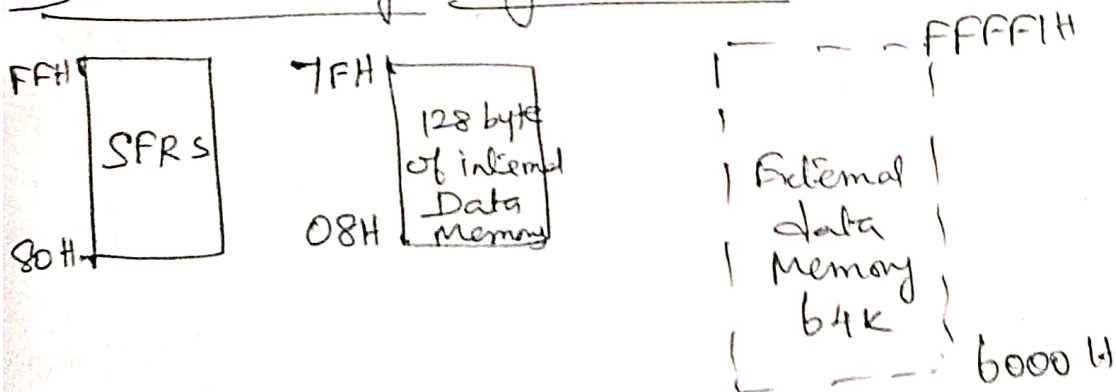 FFH
SFRs
80H
7FH
128 byte
of internal
Data
Memory
08H
FFFFH
External
data
Memory
64K
6000 H